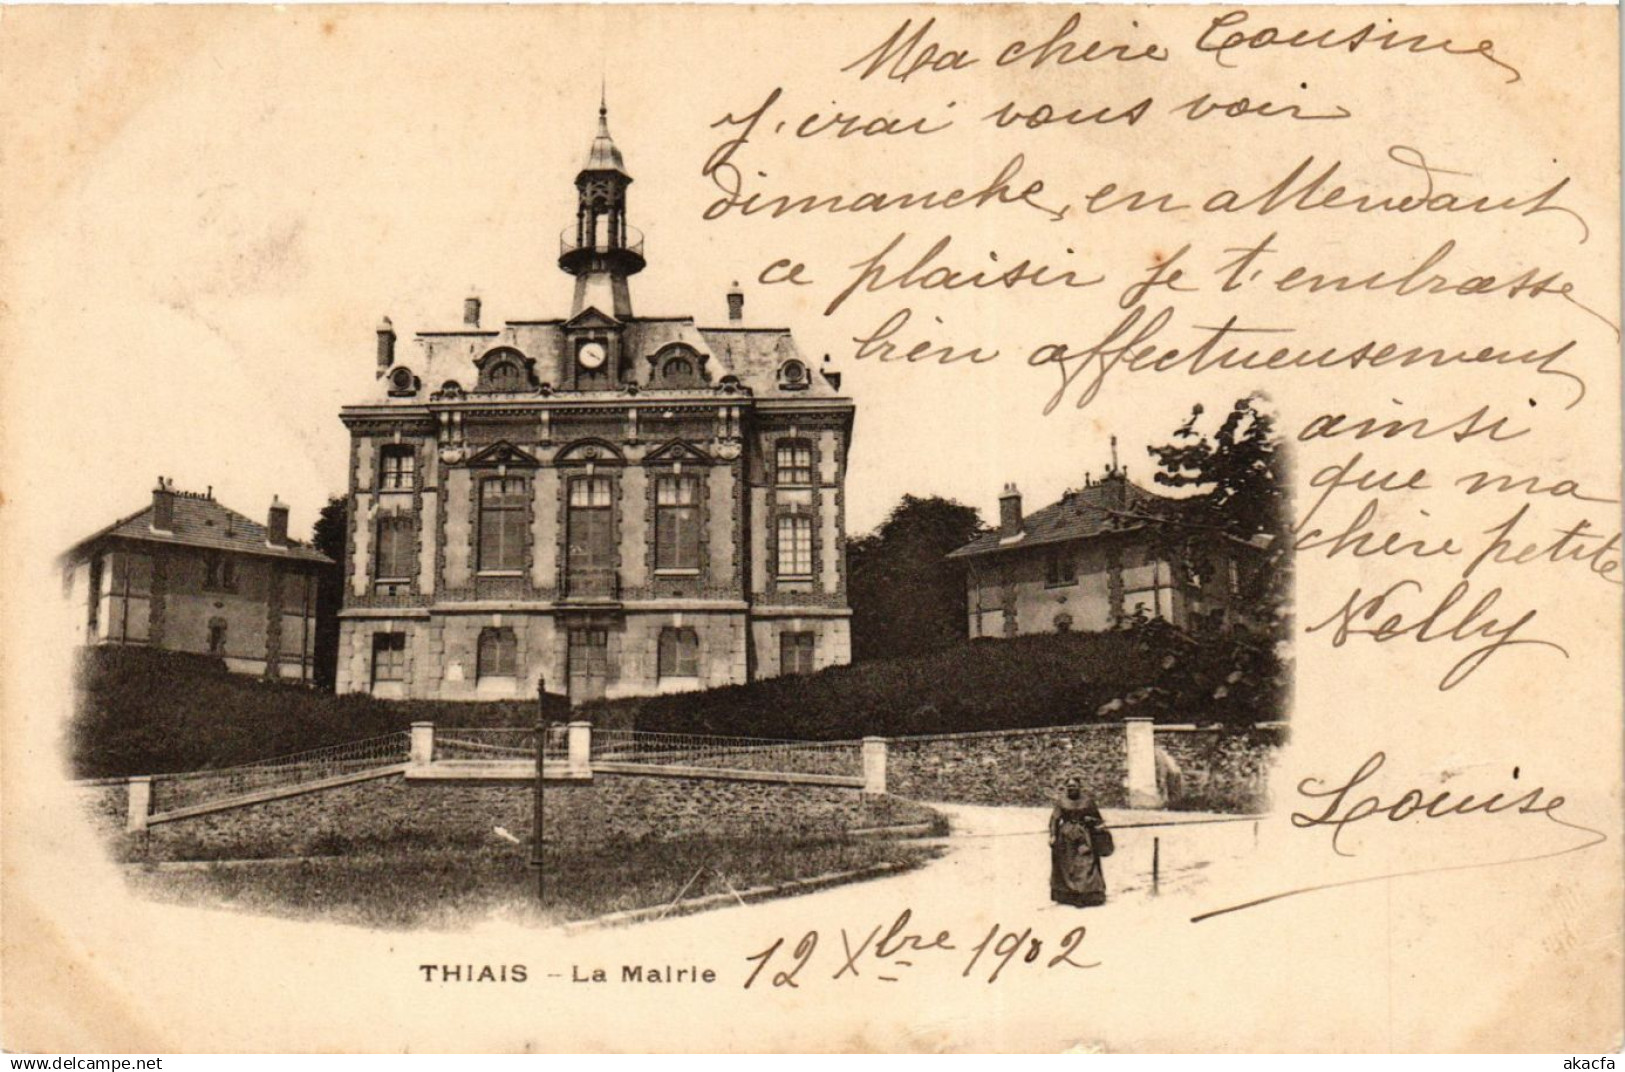 Ma chère Cousine
J'irai vous voir
dimanche, en attendant
ce plaisir je t'embrasse
bien affectueusement
ainsi
que ma
chère petite
Nelly
Louise
12 Xbre 1902
THIAIS – La Mairie
akacfa